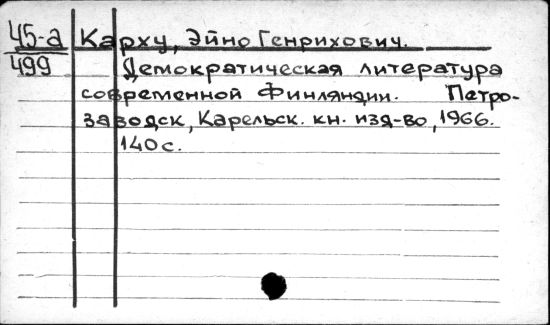 45-а Карху, Эйно Генрихович.
499 Демократическая литература
современной Финляндии. Петро-
заводск, Карельск. кн. изд-во, 1966.
140 с.